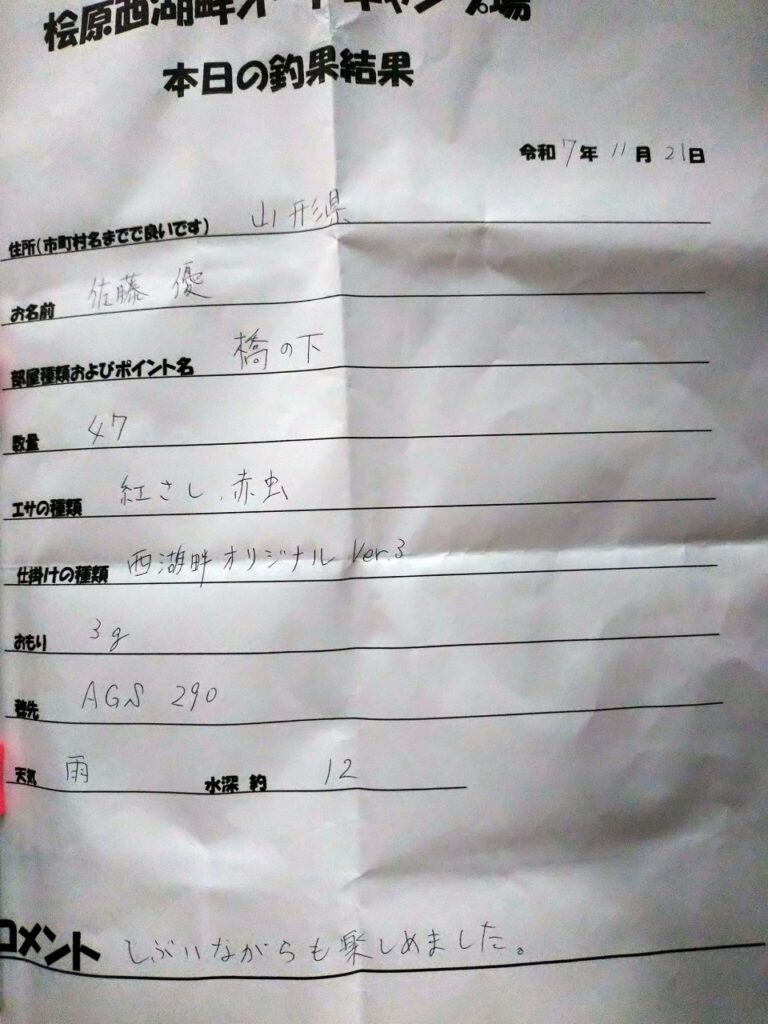 桧原西湖畔オートキャンプ場
本日の釣果結果
令和 7 年 11 月 21 日
住所(市町村名までで良いです) 山形県
お名前 佐藤 優
部屋種類およびポイント名 橋の下
数量 47
エサの種類 紅さし、赤虫
仕掛けの種類 西湖畔オリジナル Ver.3
おもり 3g
穂先 AGS 290
天気 雨 水深 約 12
コメント しぶいながらも楽しめました。